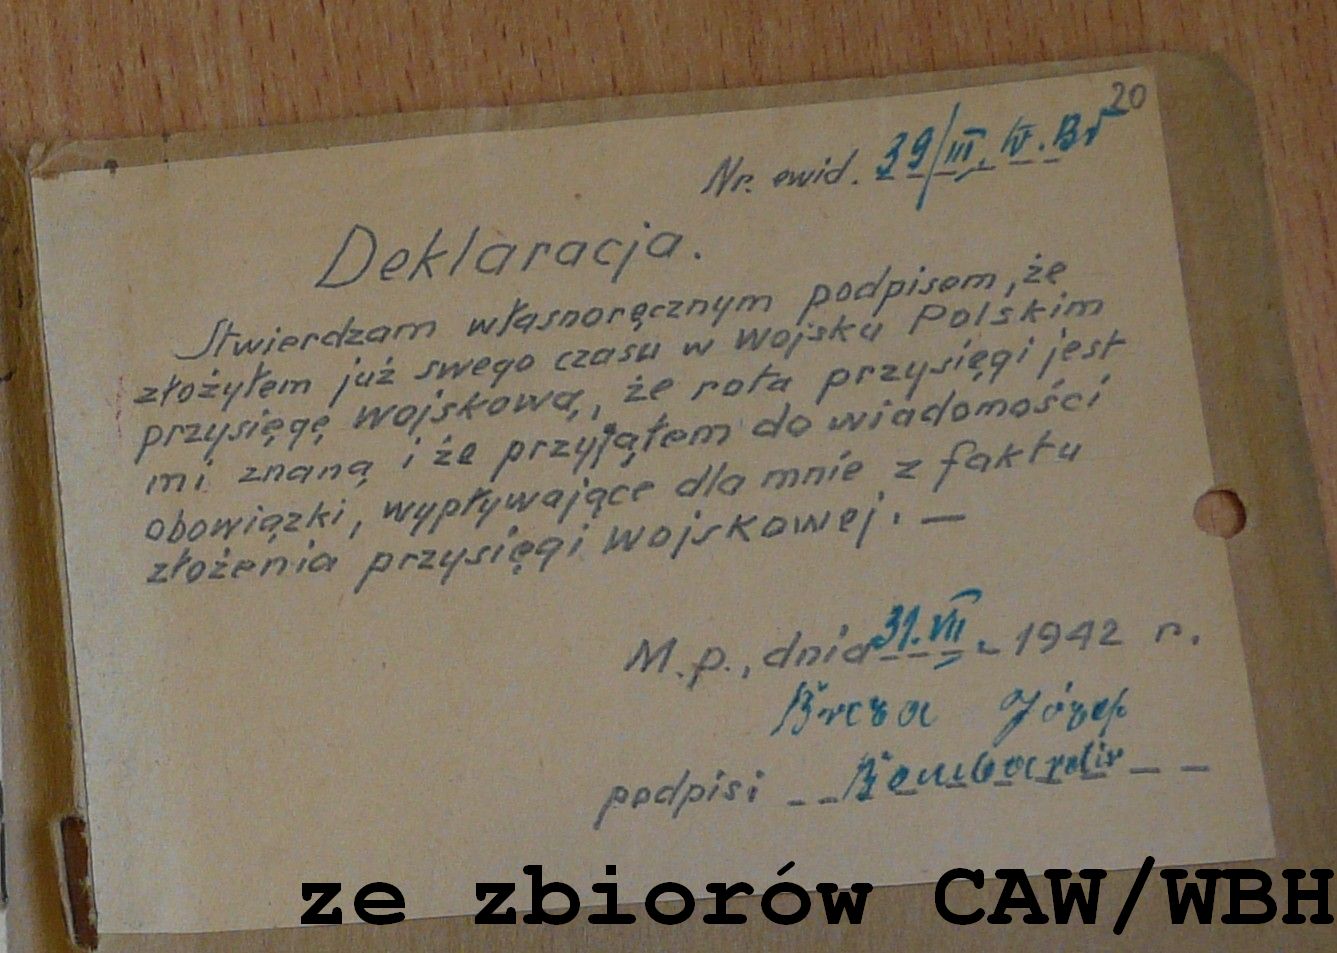 20
Nr. ewid. 39/III. IV. Br
Deklaracja.
Stwierdzam własnoręcznym podpisem, że
złożyłem już swego czasu w Wojsku Polskim
przysięgę wojskową, że rota przysięgi jest
mi znaną i że przyjąłem do wiadomości
obowiązki, wypływające dla mnie z faktu
złożenia przysięgi wojskowej. —
M.p., dnia 31.VII. 1942 r.
Józef
podpis:
ze zbiorów CAW/WBH